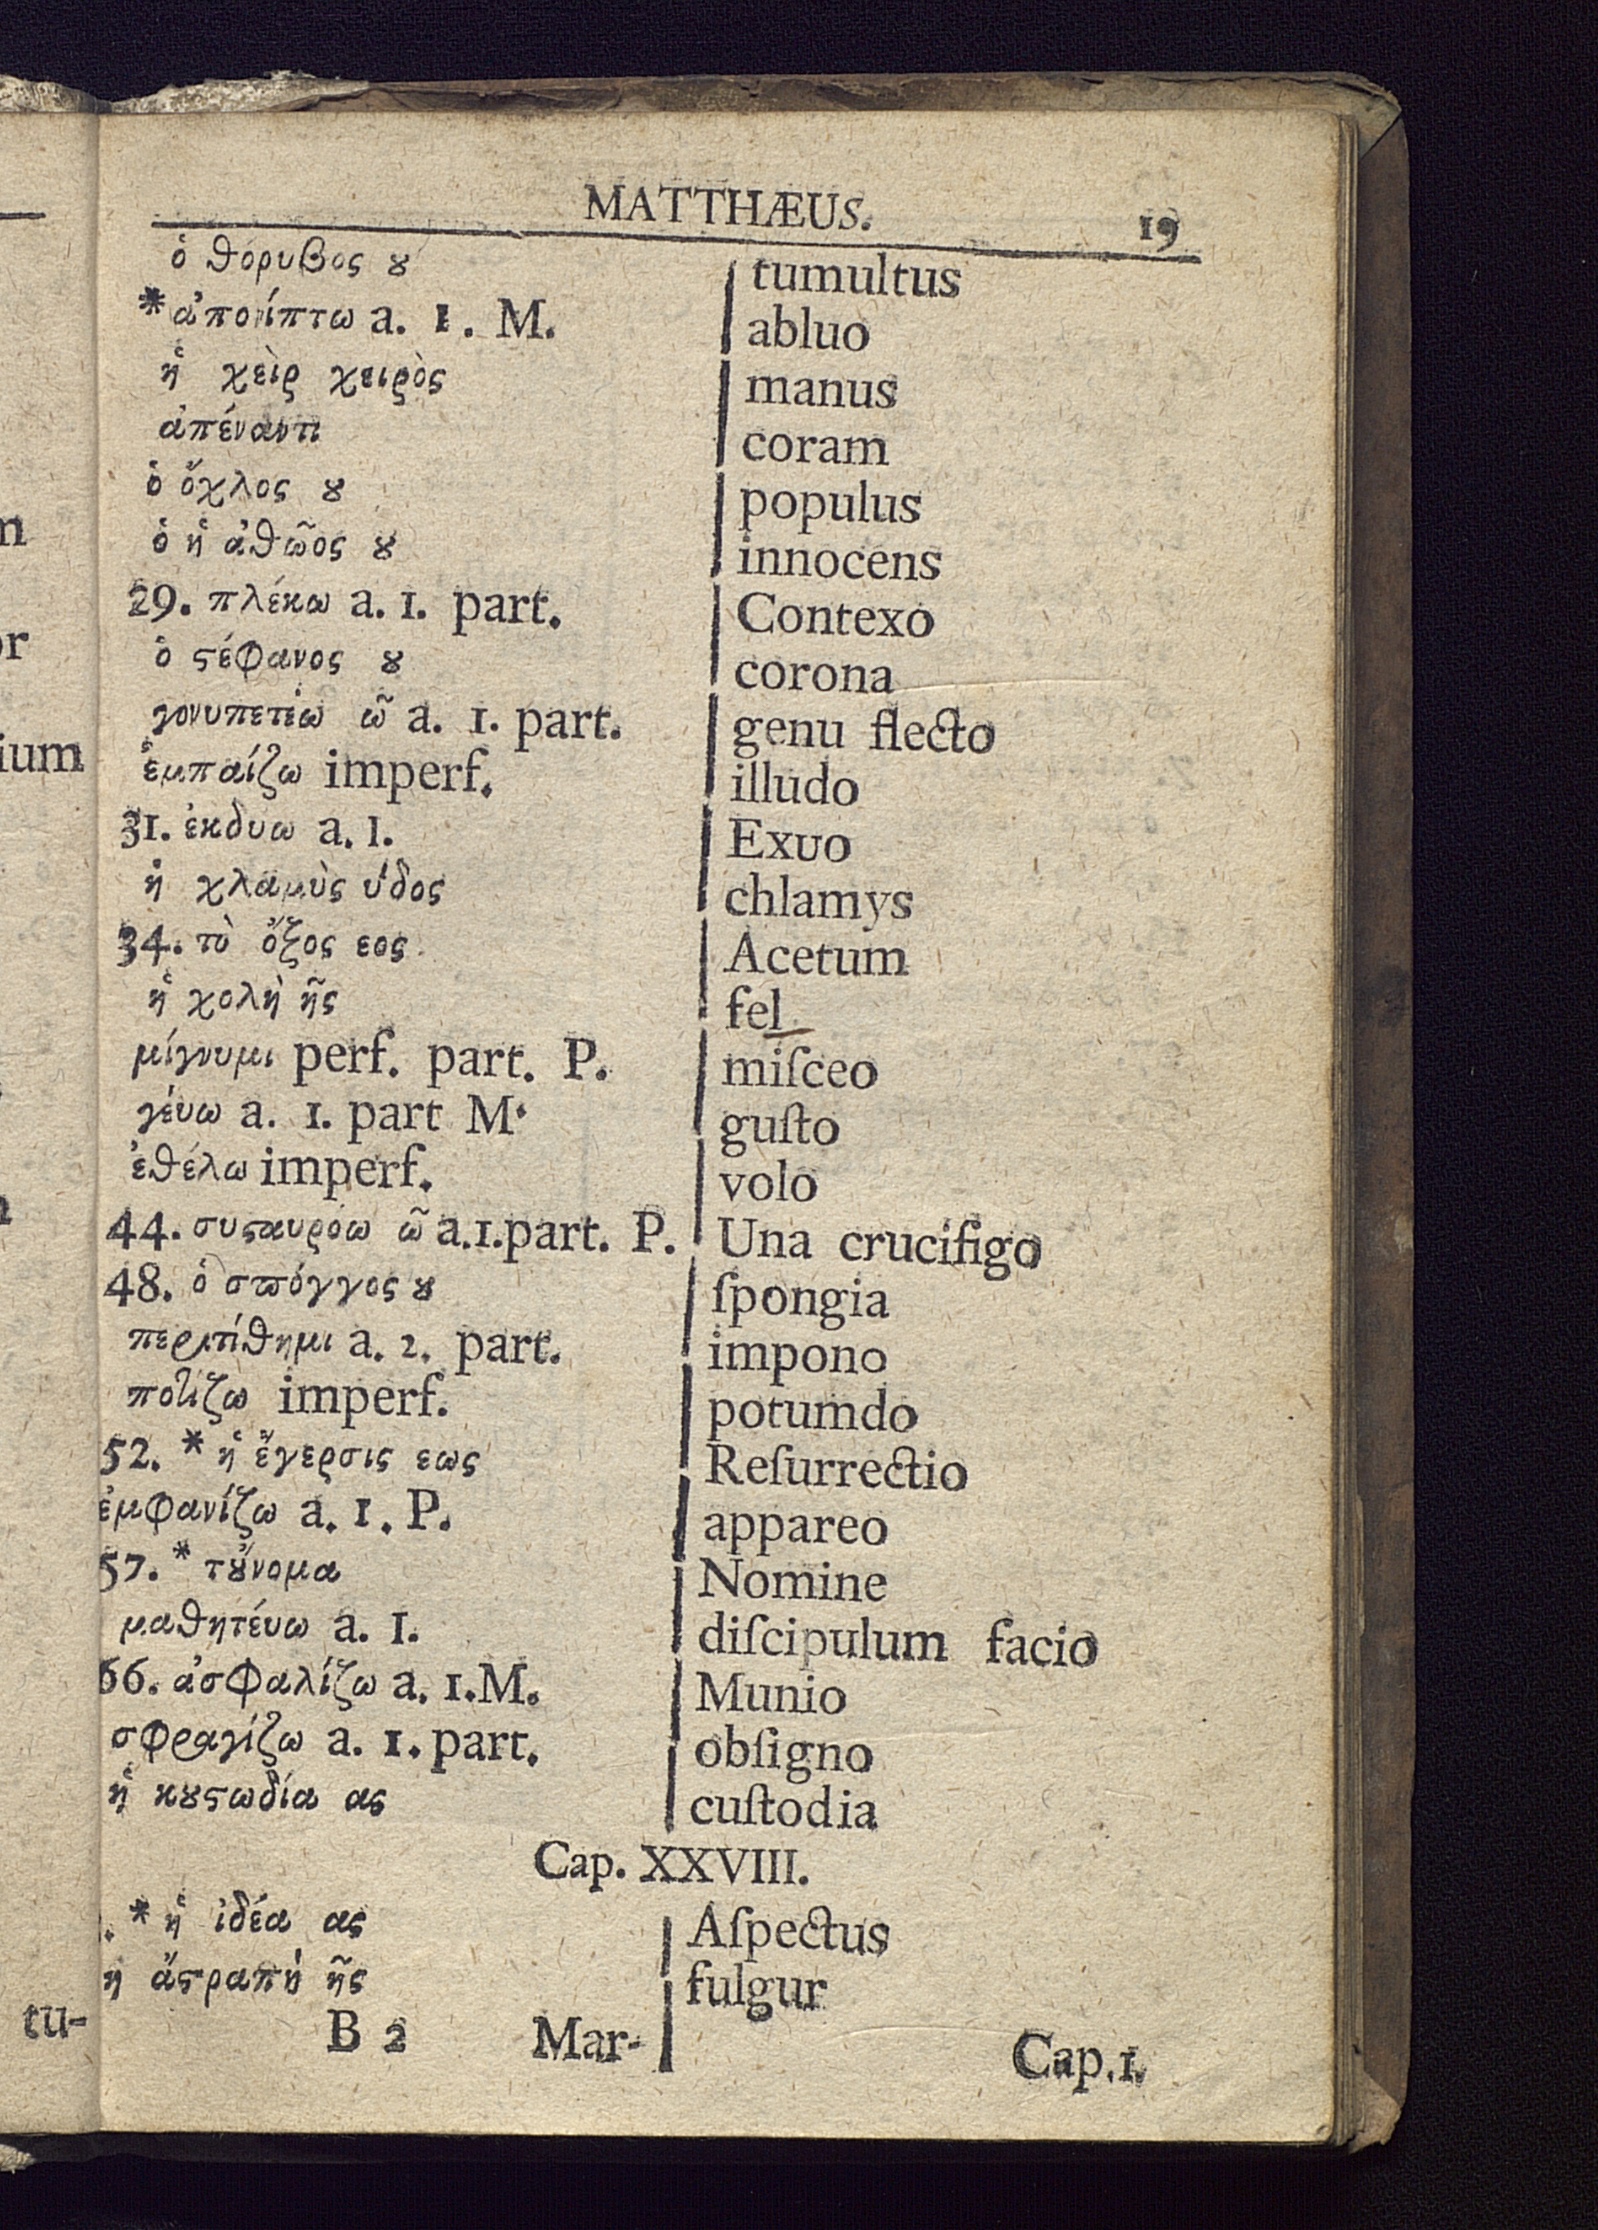 MATTHÆUS. 19
ὁ θόρυβος ȣ tumultus
*ἀπονίπτω a. 1. M. abluo
ἡ χὲιρ χειρὸς manus
ἀπέναντι coram
ὁ ὄχλος ȣ populus
ὁ ἡ ἀθῶος ȣ innocens
29. πλέκω a. 1. part. Contexo
ὁ ϛέφανος ȣ corona
γονυπετέω ῶ a. 1. part. genu flecto
ἐμπαίζω imperf. illudo
31. ἐκδυω a. 1. Exuo
ἡ χλαμὺς ύδος chlamys
34. τὸ ὄξος εος Acetum
ἡ χολὴ ῆς fel
μίγνυμι perf. part. P. miſceo
γέυω a. 1. part M. guſto
ἐθέλω imperf. volo
44. συϛαυρόω ῶ a.1.part. P. Una crucifigo
48. ὁ σπόγγος ȣ ſpongia
περιτίθημι a. 2. part. impono
ποτίζω imperf. potumdo
52. * ἡ ἔγερσις εως Reſurrectio
ἐμφανίζω a. 1. P. appareo
57. * τȣ̓́νομα Nomine
μαθητέυω a. 1. diſcipulum facio
66. ἀσφαλίζω a. 1.M. Munio
σφραγίζω a. 1. part. obſigno
ἡ κȣϛωδία ας cuſtodia
Cap. XXVIII.
. * ἡ ἰδέα ας Aſpectus
η ἄϛραπὴ ῆς fulgur
B 2 Mar- Cap.1.
n
or
ium
tu-